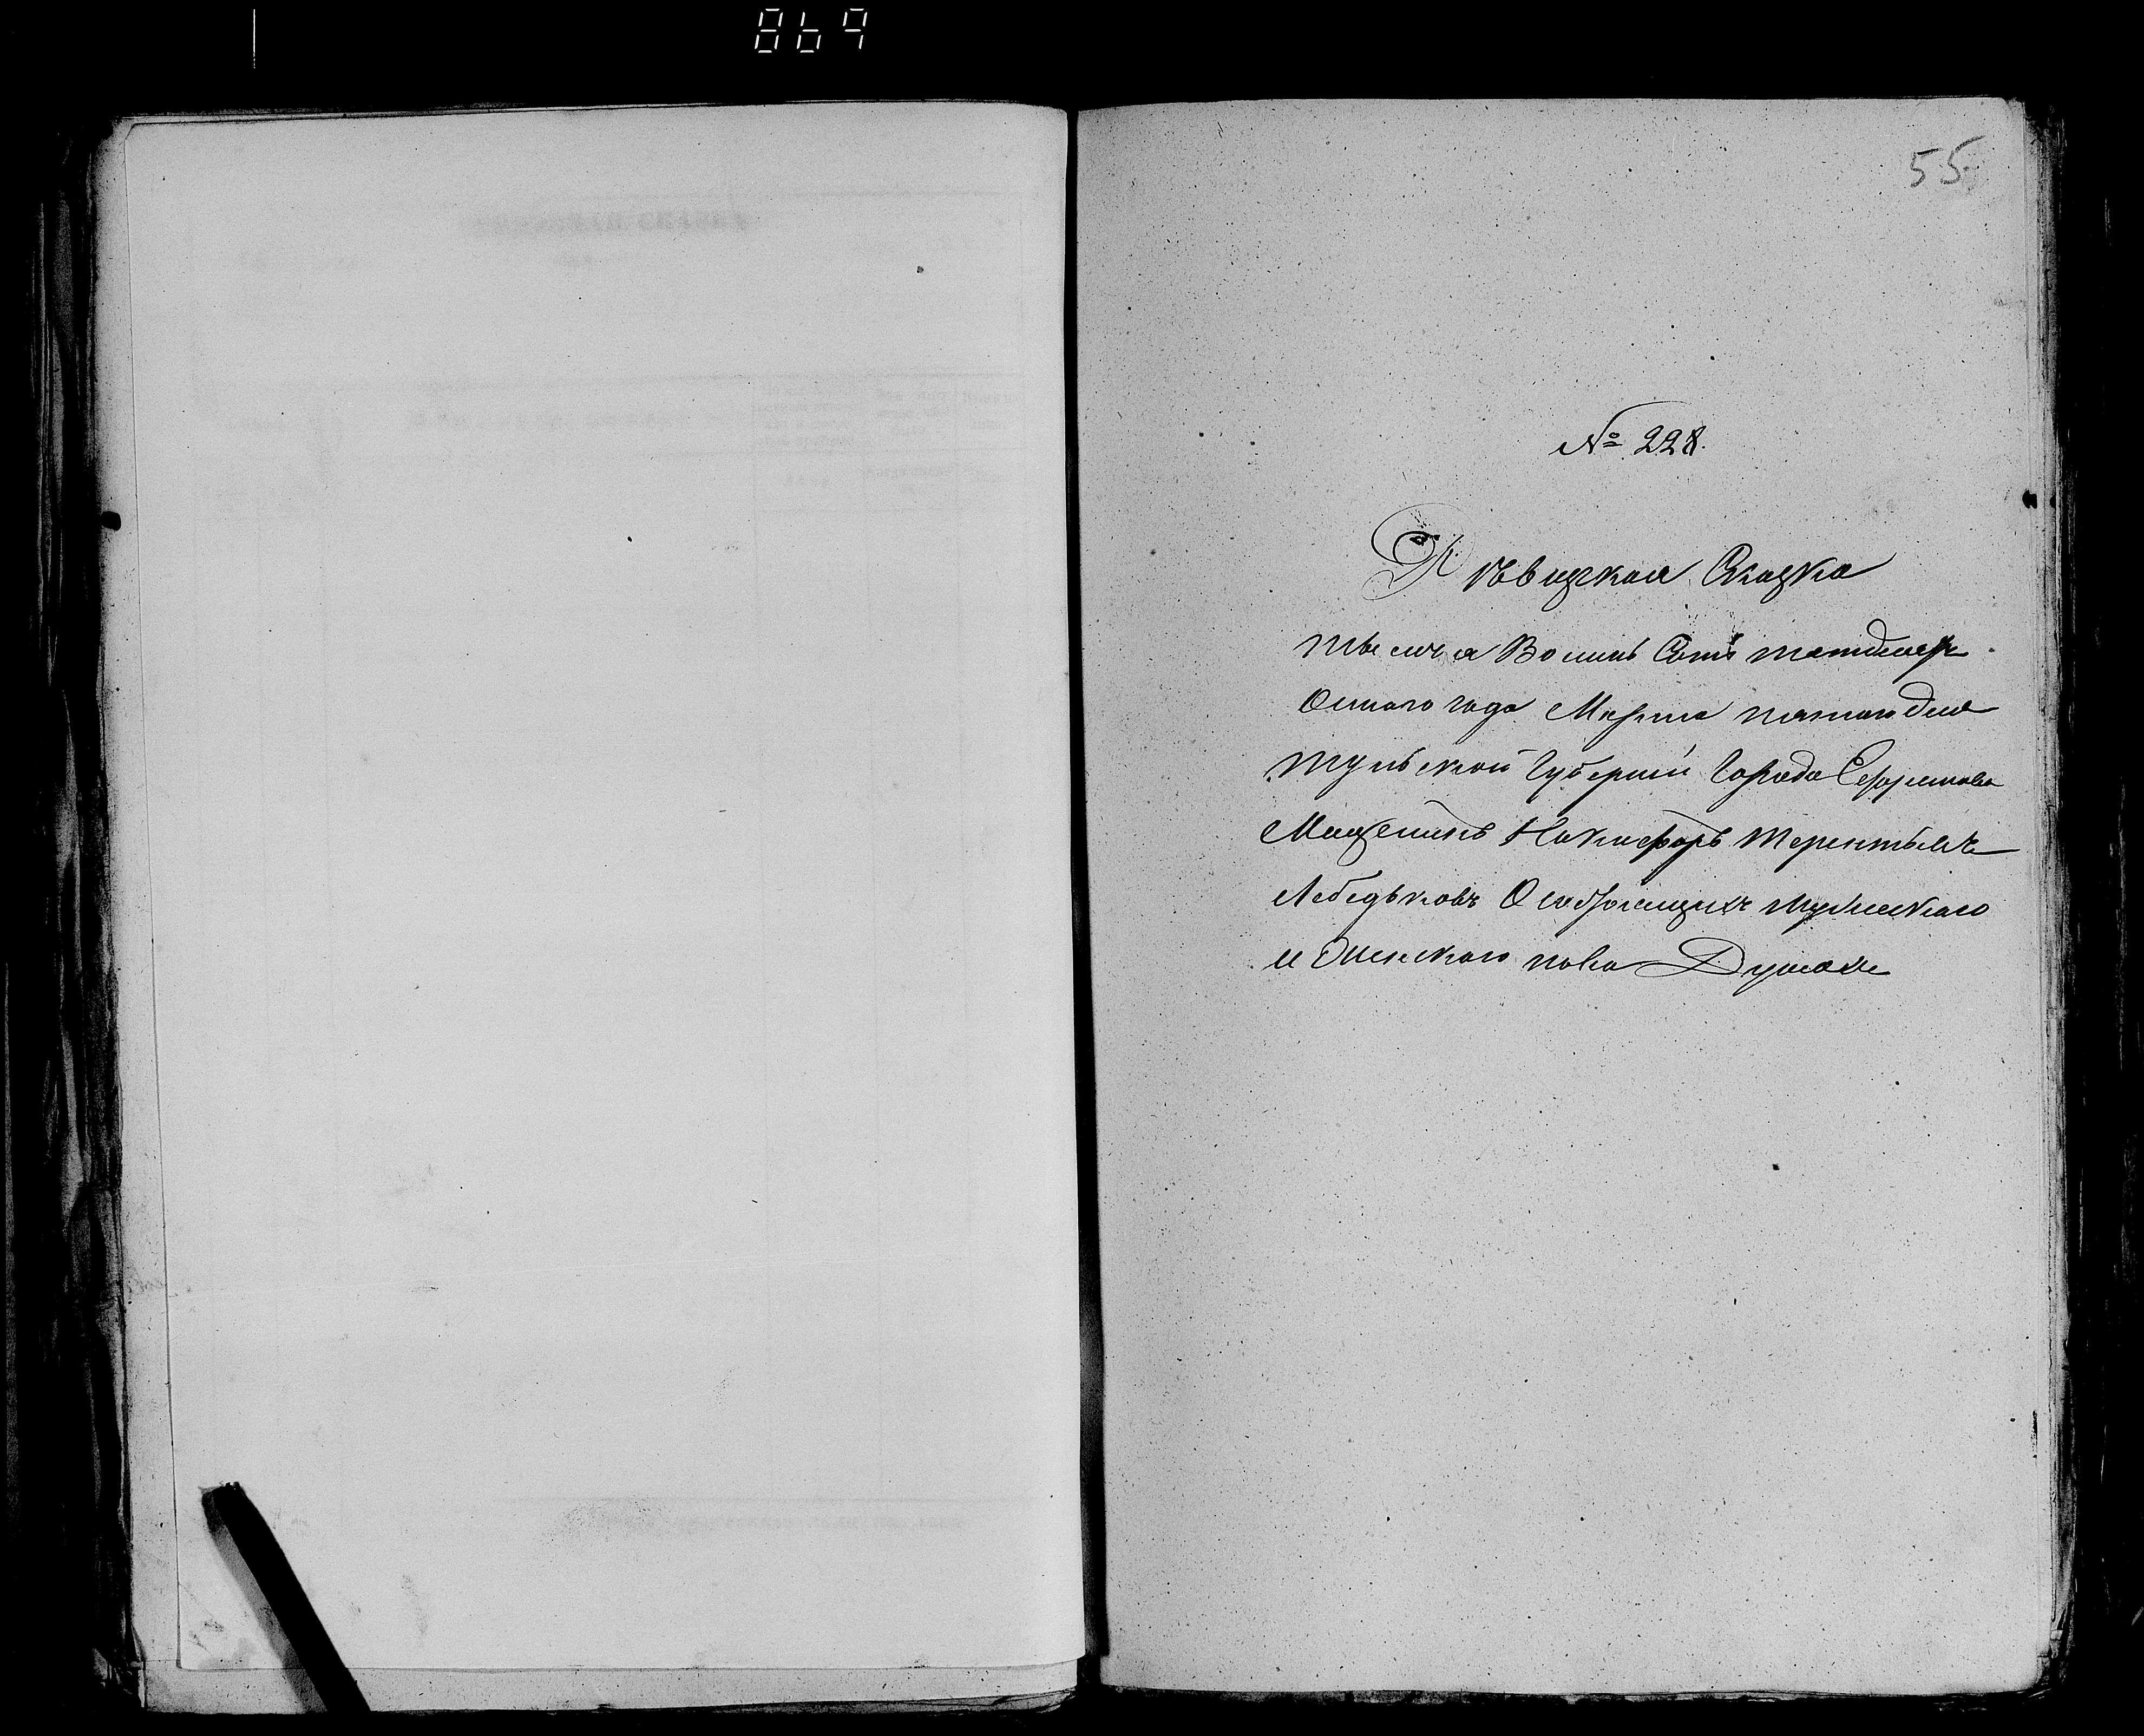 869
55
№ 228.
Ревизская Сказка
тысеча Восимь Сотъ пятдесят
Осмаго года Марта пятаго дня
Тульской Губернии Города Ефремова
Мещенинъ Никифоръ Терентьевъ
Лебедьковъ О состоящихъ мужескаго
и Женскаго пола Душахъ